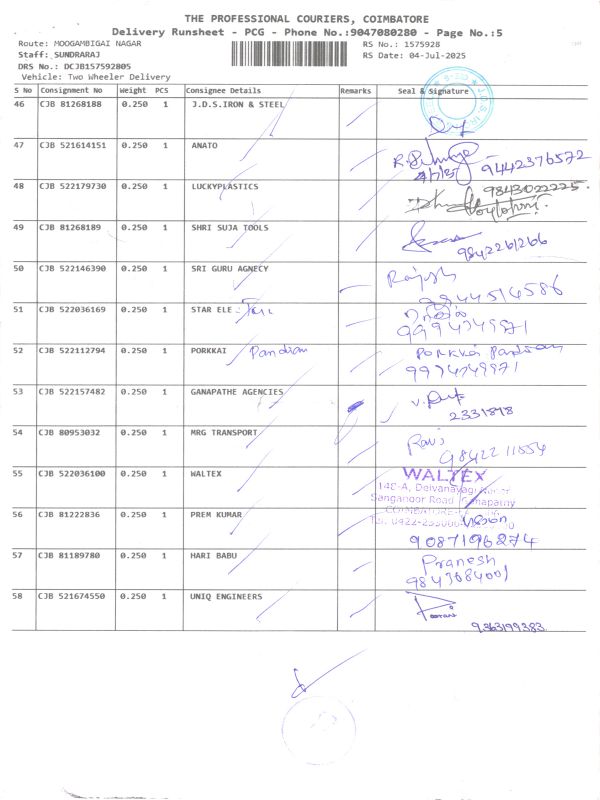 THE PROFESSIONAL COURIERS, COIMBATORE
Delivery Runsheet - PCG - Phone No.:9047080280 - Page No.:5
Route: MOOGAMBIGAI NAGAR RS No.: 1575928
Staff: SUNDRARAJ RS Date: 04-Jul-2025
DRS No.: DCJB157592805
Vehicle: Two Wheeler Delivery
S No Consignment No Weight PCS Consignee Details Remarks Seal & Signature
46 CJB 81268188 0.250 1 J.D.S.IRON & STEEL
47 CJB 521614151 0.250 1 ANATO 9442376572
48 CJB 522179730 0.250 1 LUCKYPLASTICS 9843022225.
49 CJB 81268189 0.250 1 SHRI SUJA TOOLS 9842261266
50 CJB 522146390 0.250 1 SRI GURU AGNECY Rajesh
51 CJB 522036169 0.250 1 STAR ELE
9994749971
52 CJB 522112794 0.250 1 PORKKAI Pandian Porkkai Pandian
9974749971
53 CJB 522157482 0.250 1 GANAPATHE AGENCIES
2331848
54 CJB 80953032 0.250 1 MRG TRANSPORT Ravi
9842211554
55 CJB 522036100 0.250 1 WALTEX WALTEX
148-A, Deivanayagi Nagar
Sanganoor Road, Ganapathy
COIMBATORE
56 CJB 81222836 0.250 1 PREM KUMAR
9087196274
57 CJB 81189780 0.250 1 HARI BABU Pranesh
9843084001
58 CJB 521674550 0.250 1 UNIQ ENGINEERS
9363199383